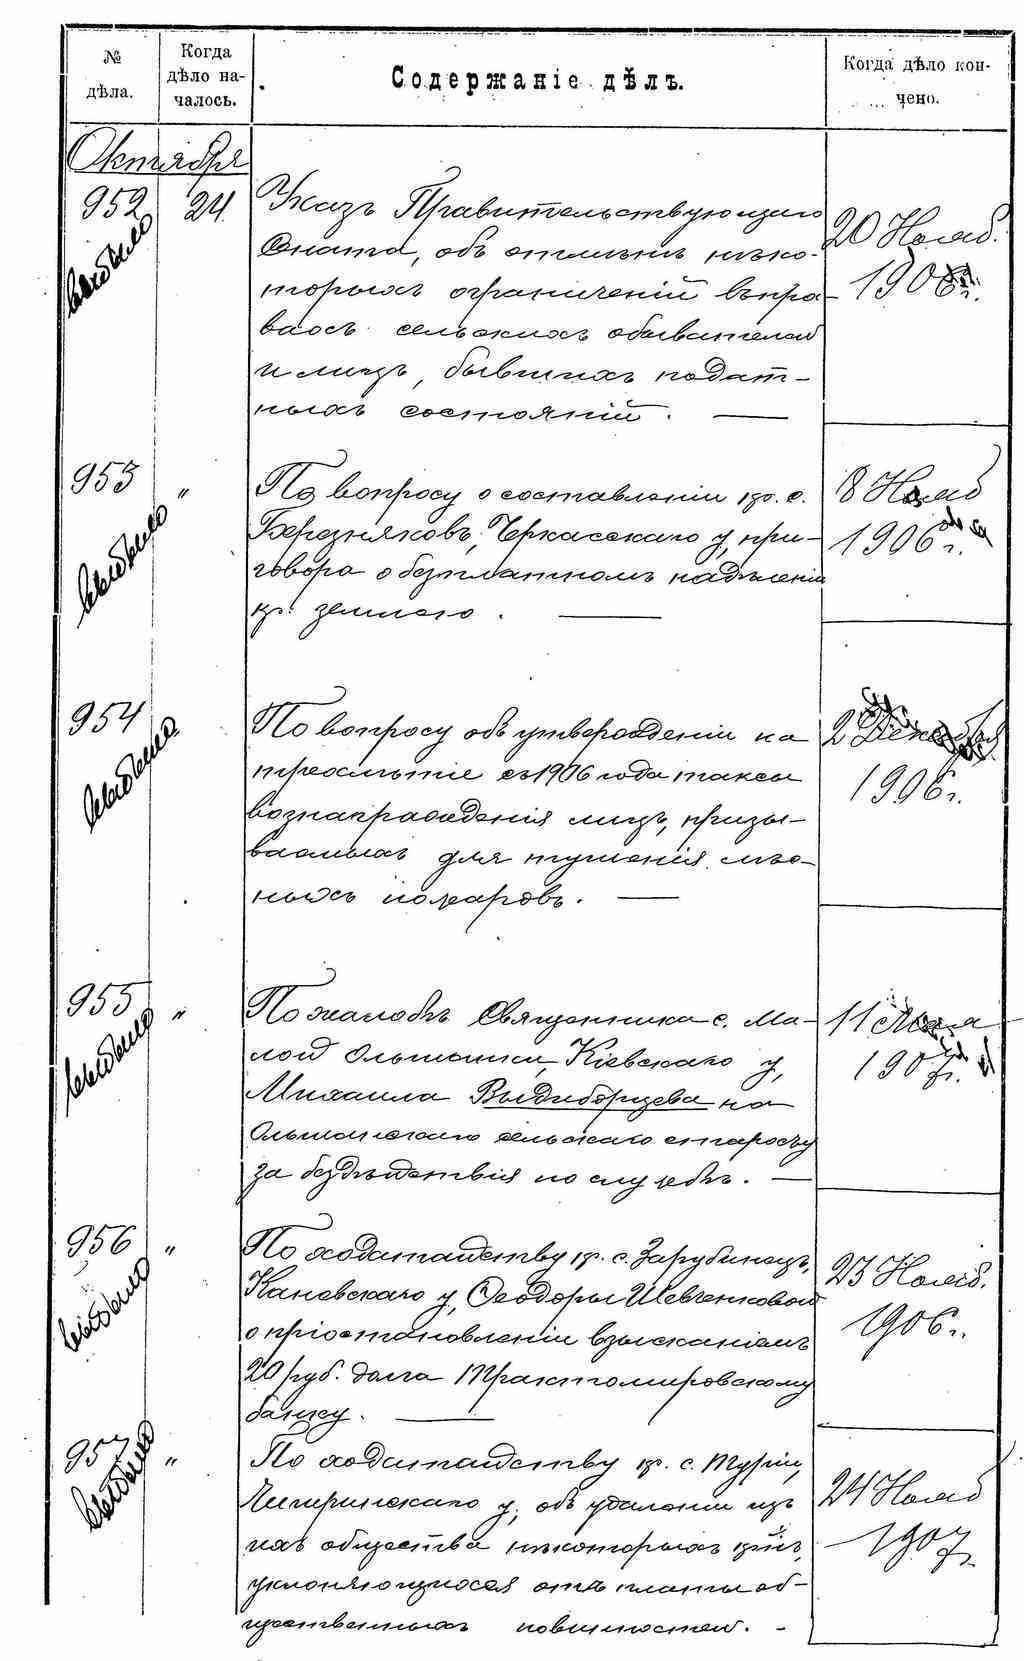 № дѣла.
Когда дѣло на-
чалось.
Содержаніе дѣлъ.
Когда дѣло кон-
чено.
Октября
952 24 Указъ Правительствующаго
Сената, объ отмѣнѣ нѣко-
торыхъ ограниченій въ пра-
вахъ сельскихъ обывателей
и лицъ, бывшихъ подат-
ныхъ состояній. —
20 Нояб.
1906 г.
выбыло
953 " По вопросу о составленіи кр. с.
Березняковъ, Черкасскаго у, при-
говора о безплатномъ надѣленіи
кр. землею. —
8 Нояб
1906 г.
выбыло
954 По вопросу объ утвержденіи на
трехлѣтіе съ 1906 года таксы
вознагражденія лицъ, призы-
ваемыхъ для тушенія лѣс-
ныхъ пожаровъ. —
2 Декабря
1906 г.
выбыло
955 " По жалобѣ Священника с. Ма-
лой Ольшанки, Кіевскаго у,
Михаила Выдиборцева на
Ольшанскаго сельскаго старосту
за бездѣйствія по службѣ. —
11 Мая
1907 г.
выбыло
956 " По ходатайству кр. с. Зарубинецъ,
Каневскаго у, Ѳеодоры Шевченковой
о пріостановленіи взысканіемъ
20 руб. долга Трактомировскому
банку. —
23 Нояб.
1906 г.
выбыло
957 " По ходатайству кр. с. Турии,
Чигиринскаго у, объ удаленіи изъ
ихъ общества нѣкоторыхъ кр-нъ,
уклоняющихся отъ платы об-
щественныхъ повинностей. -
24 Нояб
1907 г.
выбыло